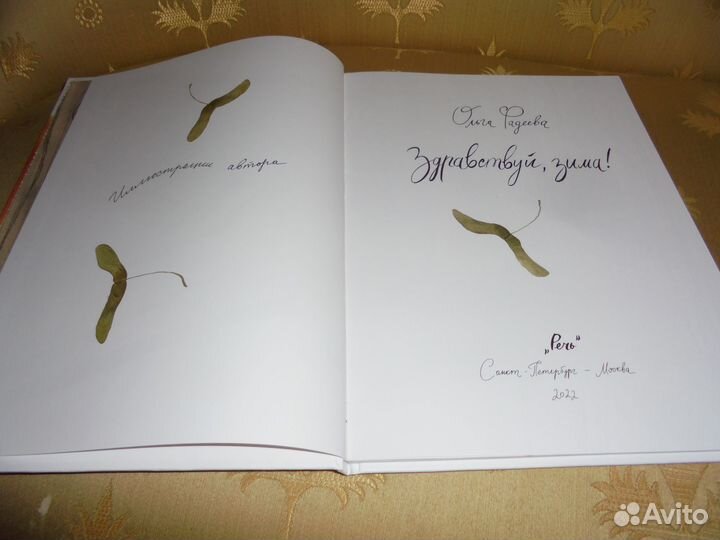 Иллюстрации автора
Ольга Фадеева
Здравствуй, зима!
„Речь“
Санкт-Петербург - Москва
2022
Avito